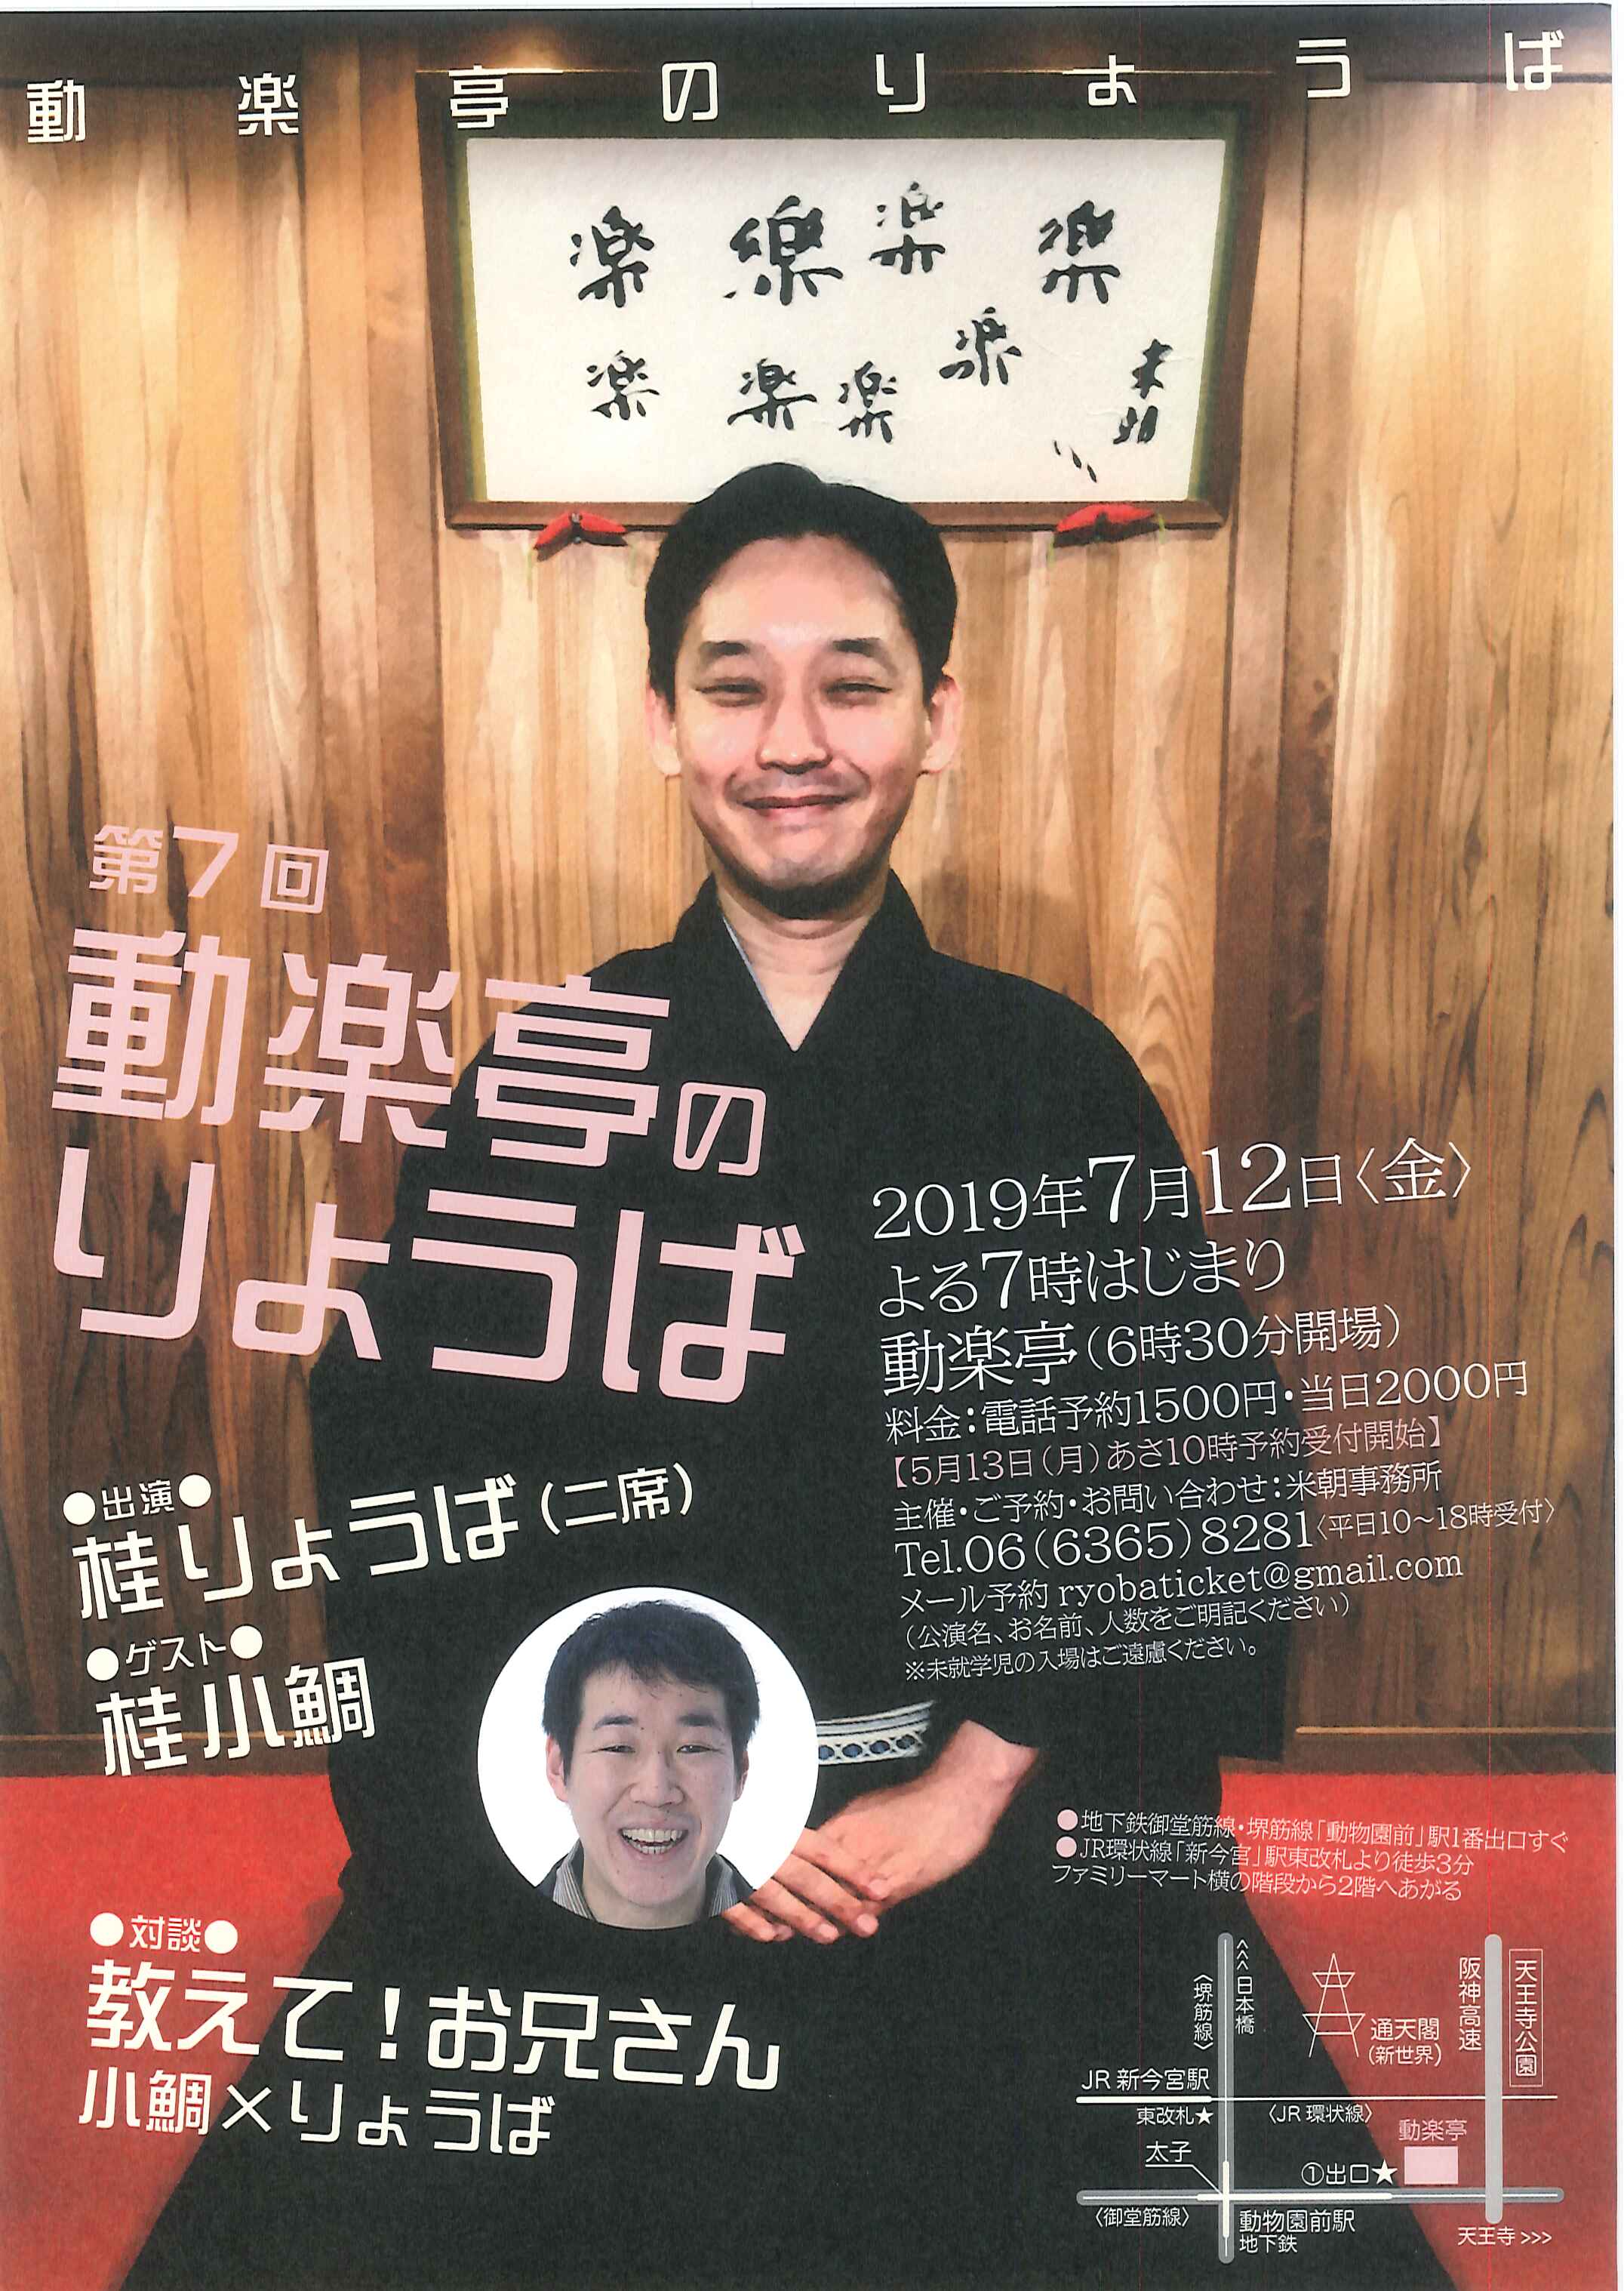 動楽亭のりょうば
楽 樂 楽 楽
楽 楽 楽 楽
米朝
第7回
動楽亭の
りょうば
2019年7月12日〈金〉
よる7時はじまり
動楽亭(6時30分開場)
料金:電話予約1500円・当日2000円
【5月13日(月)あさ10時予約受付開始】
主催・ご予約・お問い合わせ:米朝事務所
Tel.06(6365)8281〈平日10～18時受付〉
メール予約 ryobaticket@gmail.com
(公演名、お名前、人数をご明記ください)
※未就学児の入場はご遠慮ください。
●出演●
桂りょうば(二席)
●ゲスト●
桂小鯛
●対談●
教えて!お兄さん
小鯛×りょうば
●地下鉄御堂筋線・堺筋線「動物園前」駅1番出口すぐ
●JR環状線「新今宮」駅東改札より徒歩3分
ファミリーマート横の階段から2階へあがる
〈堺筋線〉
<<<日本橋
通天閣
(新世界)
阪神高速
天王寺公園
JR 新今宮駅
東改札★
〈JR 環状線〉
動楽亭
太子
①出口★
〈御堂筋線〉
動物園前駅
地下鉄
天王寺 >>>